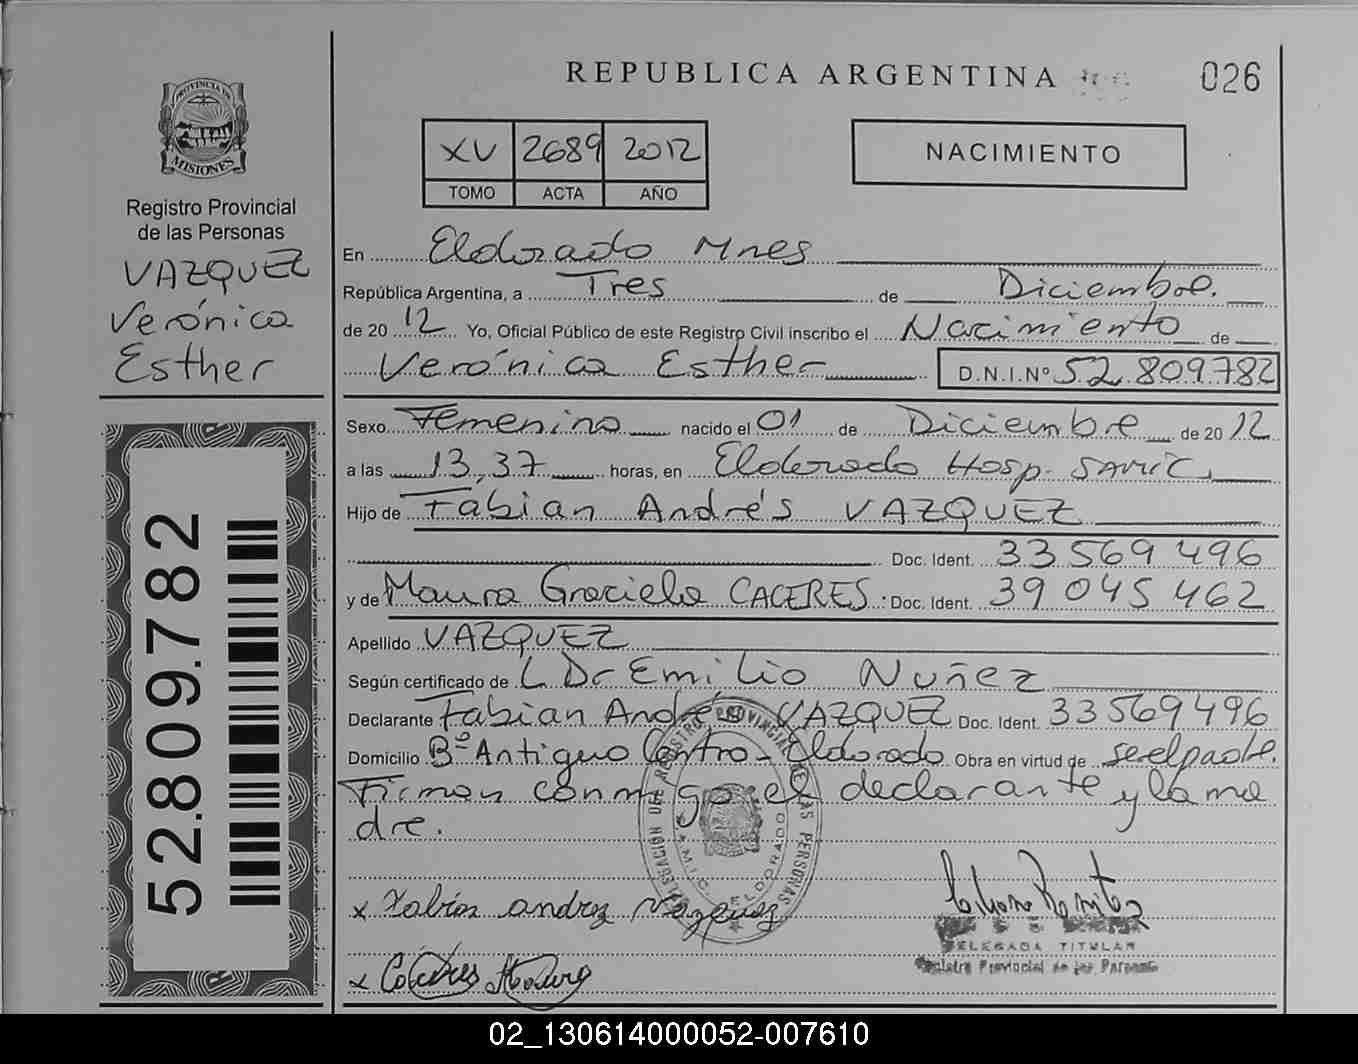 REPUBLICA ARGENTINA
026
PROVINCIA DE
MISIONES
Registro Provincial
de las Personas
VAZQUEZ
Verónica
Esther
52.809.782
XV 2689 2012
TOMO ACTA AÑO
NACIMIENTO
En Eldorado Mnes
República Argentina, a Tres de Diciembre.
de 20 12 Yo, Oficial Público de este Registro Civil inscribo el Nacimiento de
Verónica Esther D.N.I.Nº 52.809.782
Sexo Femenino nacido el 01 de Diciembre de 20 12
a las 13,37 horas, en Eldorado Hosp. SAMIC,
Hijo de Fabian Andrés VAZQUEZ
Doc. Ident. 33 569 496
y de Maura Graciela CACERES. Doc. Ident. 39 045 462
Apellido VAZQUEZ
Según certificado de L Dr Emilio Nuñez
Declarante Fabian Andrés VAZQUEZ Doc. Ident. 33569496
Domicilio Bº Antiguo Centro - Eldorado Obra en virtud de ser el padre.
Firman conmigo el declarante y la ma
dre.
DELEGACIÓN DEL REGISTRO PROVINCIAL DE LAS PERSONAS
ELDORADO
x Fabian andrez Vazquez
x Caceres Maura
DELEGADA TITULAR
Registro Provincial de las Personas
02_130614000052-007610